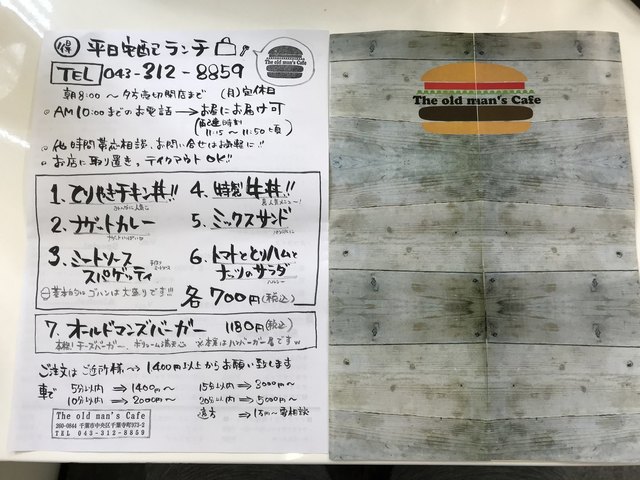 得 平日宅配ランチ
The old man's Cafe
TEL 043-312-8859
朝8:00～夕方売切閉店まで (月)定休日
AM10:00までのお電話→お昼にお届け可
(配達時刻 11:15～11:50頃)
他時間帯応相談、お問い合せはお気軽に!!
お店に取り置き、テイクアウトOK!!
1. てりやきチキン丼!!
2. ナゲットカレー
3. ミートソース
スパゲッティ
4. 特製牛丼!!
5. ミックスサンド
6. トマトととりハムと
ナッツのサラダ
基本的にゴハンは大盛りです!!!
各700円(税込)
7. オールドマンズバーガー 1180円(税込)
本格!チーズバーガー、ボリューム満天 ※本業はハンバーガー屋ですw
ご注文はご近所様～1400円以上からお願い致します
車で 5分以内⇒1400円～ 15分以内⇒3000円～
10分以内⇒2000円～ 20分以内⇒5000円～
遠方⇒1万円～要相談
The old man's Cafe
260-0844 千葉市中央区千葉寺町973-2
TEL 043-312-8859
The old man's Cafe